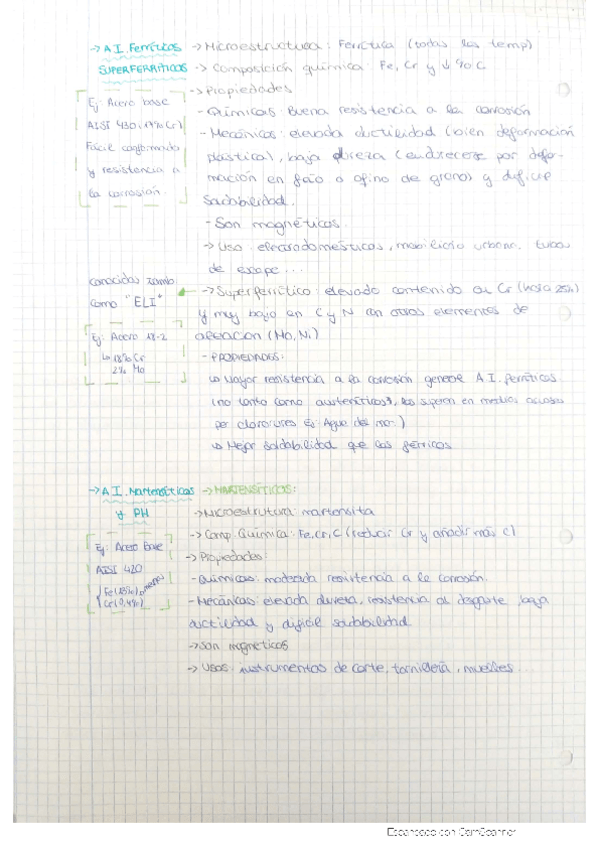 → A I. Ferríticos → Microestructura: Ferrítica (todas las temp)
SUPERFERRITICOS → Composición química: Fe, Cr y ↓ % C
→ Propiedades
Ej: Acero base
AISI 430 (17% Cr)
Fácil conformado
y resistencia a
la corrosión.
- Químicas: Buena resistencia a la corrosión
- Mecánicas: elevada ductilidad (bien deformación
plástica), baja dureza (endurecerse por defor-
mación en frío o afino de grano) y dificil
Soldabilidad.
- Son magnéticos.
→ Uso: electrodomésticos, mobiliario urbano, tubos
de escape...
conocidos tamb
como "ELI"
→ Superferrítico: elevado contenido en Cr (hasta 25%)
y muy bajo en C y N con otros elementos de
aleación (Mo, Ni)
Ej: Acero 18-2
↳ 18% Cr
2% Mo
- PROPIEDADES:
↳ Mayor resistencia a la corrosión general A I. ferríticos
(no tanto como austeníticos), los superan en medios acuosos
por cloruros Ej: Agua del mar.)
↳ Mejor soldabilidad que los férricos
→ A I. Martensíticos → MARTENSÍTICOS:
y PH
→ Microestrutura: martensita
→ Comp. Química: Fe, Cr, C (reducir Cr y añadir más C)
Ej: Acero base
AISI 420
→ Propiedades:
- Químicas: moderada resistencia a la corrosión.
- Mecánicas: elevada dureza, resistencia al desgaste, baja
ductilidad y dificil soldabilidad
→ Son magnéticos
→ Usos: instrumentos de corte, tornillería, muelles...
Escaneado con CamScanner